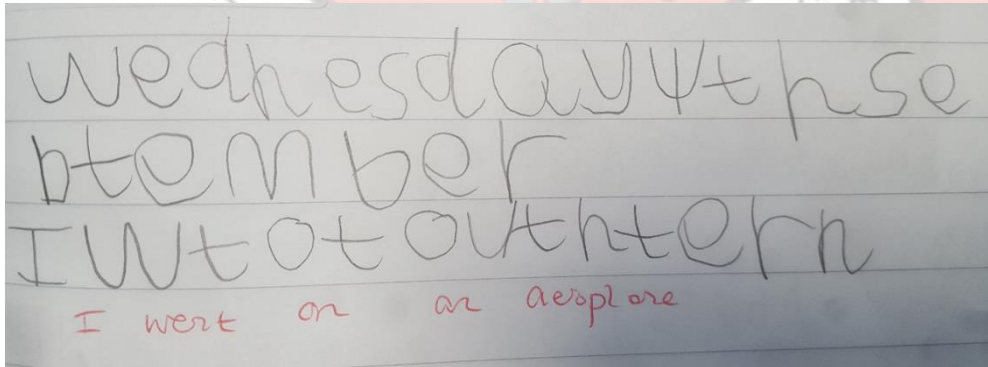 wednesday 4th se
btember
I wt ot outhtern
I went on an aeroplane